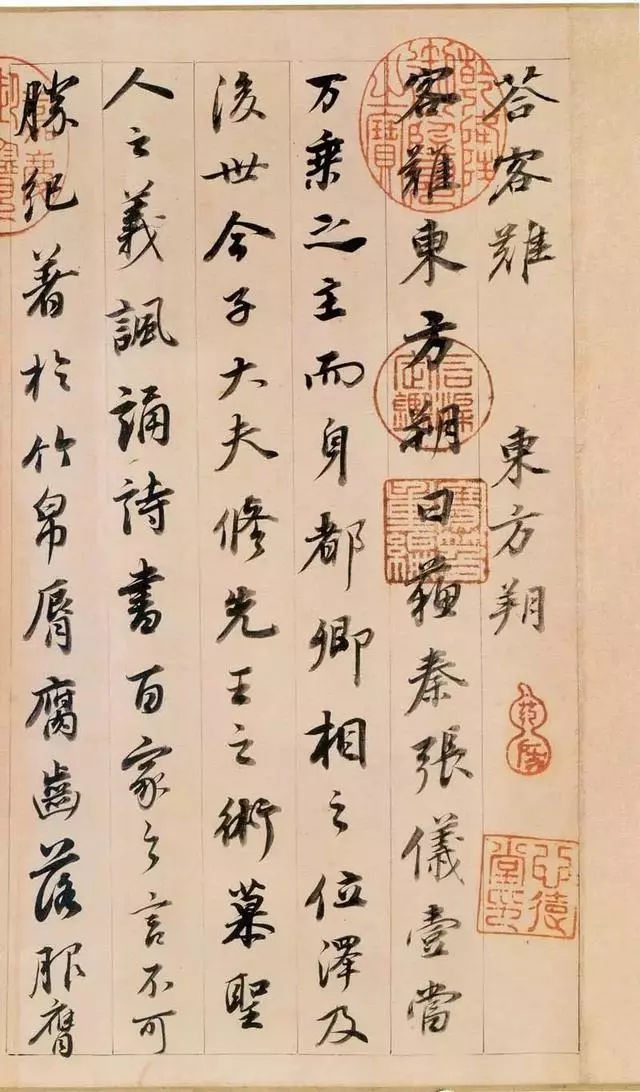 荅客難 東方朔
客難東方朔曰蘇秦張儀壹當
万乗之主而身都卿相之位澤及
後世今子大夫修先王之術慕聖
人之義諷誦詩書百家之言不可
勝紀著於竹帛脣腐齒落服膺